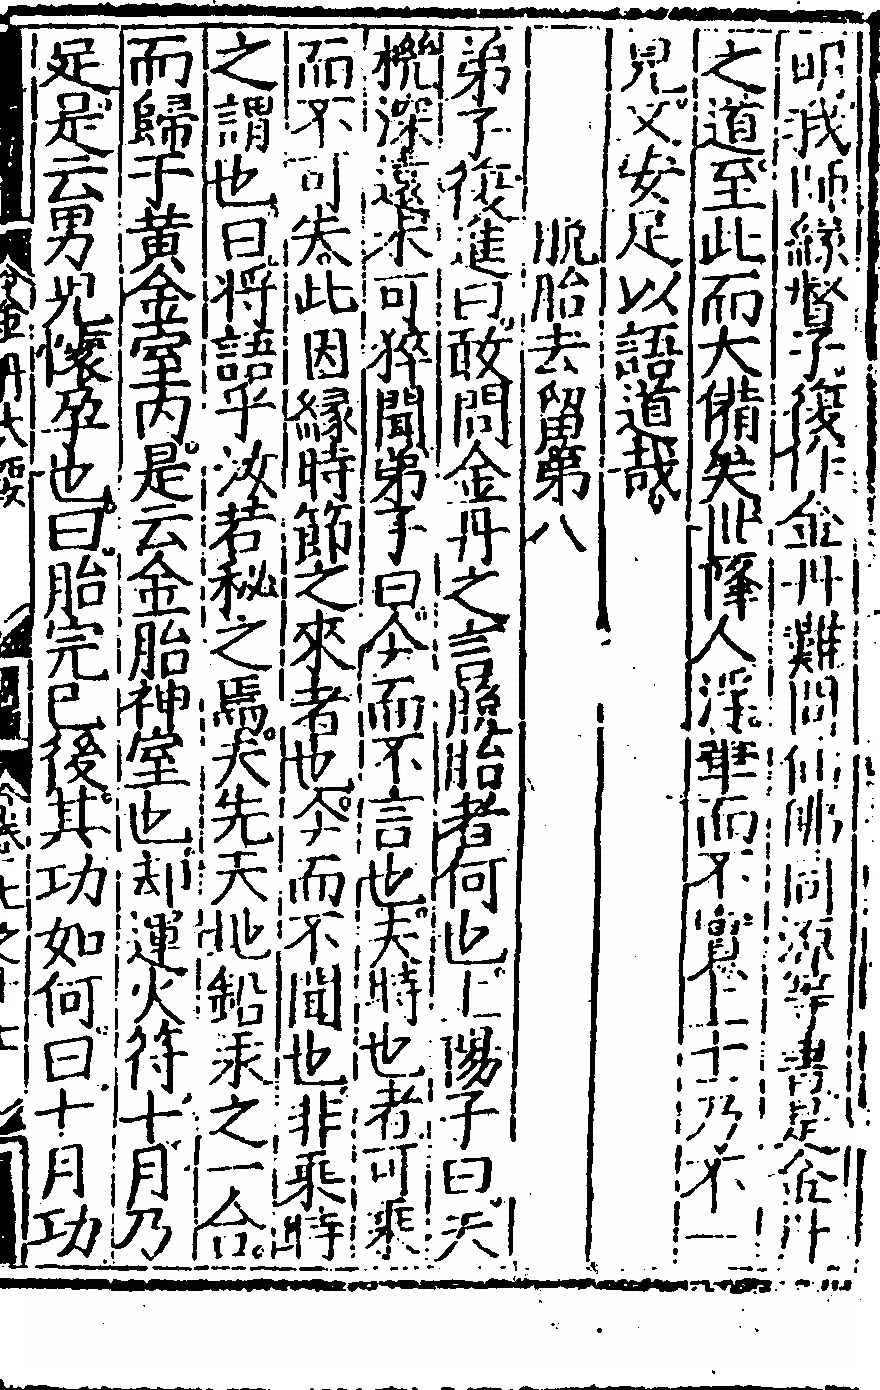 明我師緣督子復作金丹難問仙佛同源等書是金丹
之道至此而大備矣㐲陫人淫華而不實仁士乃不一
見父安足以語道哉
脫胎去留第八
弟子復進曰敢問金丹之言脫胎者何也上陽子曰天
機深遠未可猝聞弟子曰今而不言也夫時也者可乘
而不可失此因緣時節之來者也今而不聞也非乘時
之謂也曰將語乎汝若秘之焉夫先天地鉛汞之一合
而歸于黃金室內是云金胎神室也却運火符十月乃
足是云男兒懷孕也曰胎完已後其功如何曰十月功
金丹大要